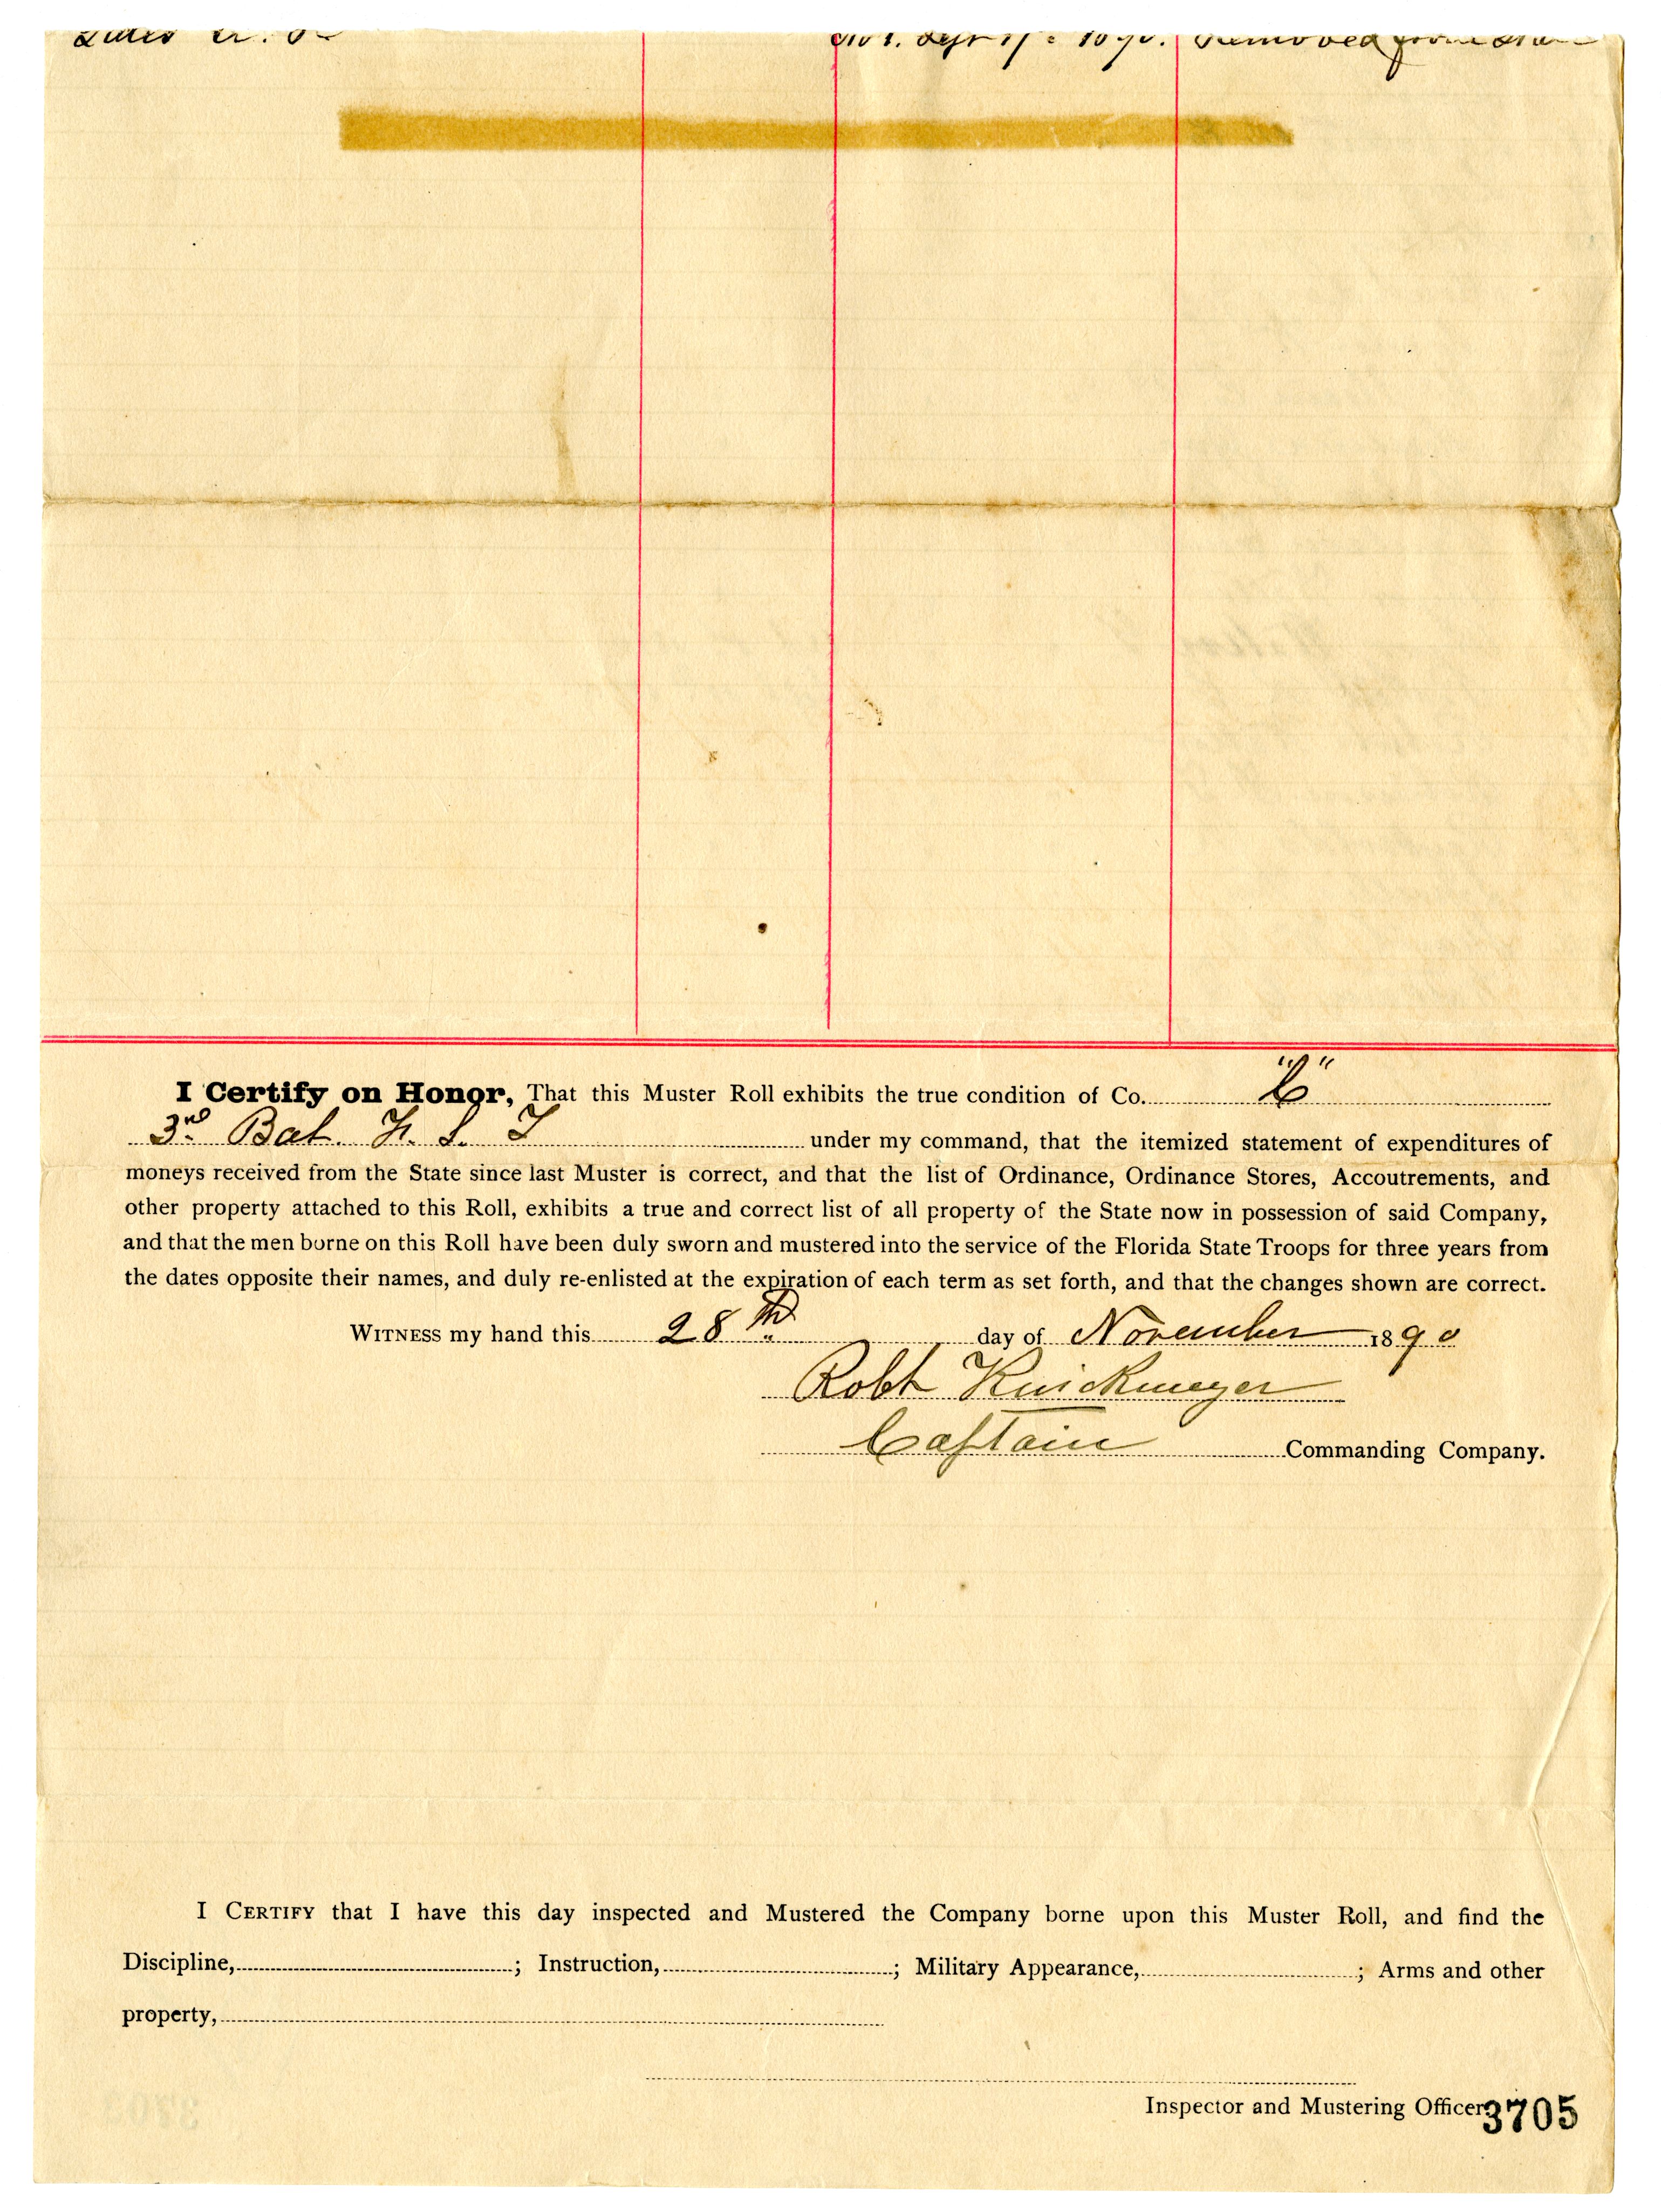 1890. Removed from
I Certify on Honor, That this Muster Roll exhibits the true condition of Co. "C"
3rd Bat. F. S. T under my command, that the itemized statement of expenditures of
moneys received from the State since last Muster is correct, and that the list of Ordinance, Ordinance Stores, Accoutrements, and
other property attached to this Roll, exhibits a true and correct list of all property of the State now in possession of said Company,
and that the men borne on this Roll have been duly sworn and mustered into the service of the Florida State Troops for three years from
the dates opposite their names, and duly re-enlisted at the expiration of each term as set forth, and that the changes shown are correct.
WITNESS my hand this 28th day of November 1890
Robt
Captain Commanding Company.
I CERTIFY that I have this day inspected and Mustered the Company borne upon this Muster Roll, and find the
Discipline, ; Instruction, ; Military Appearance, ; Arms and other
property,
Inspector and Mustering Officer
3705